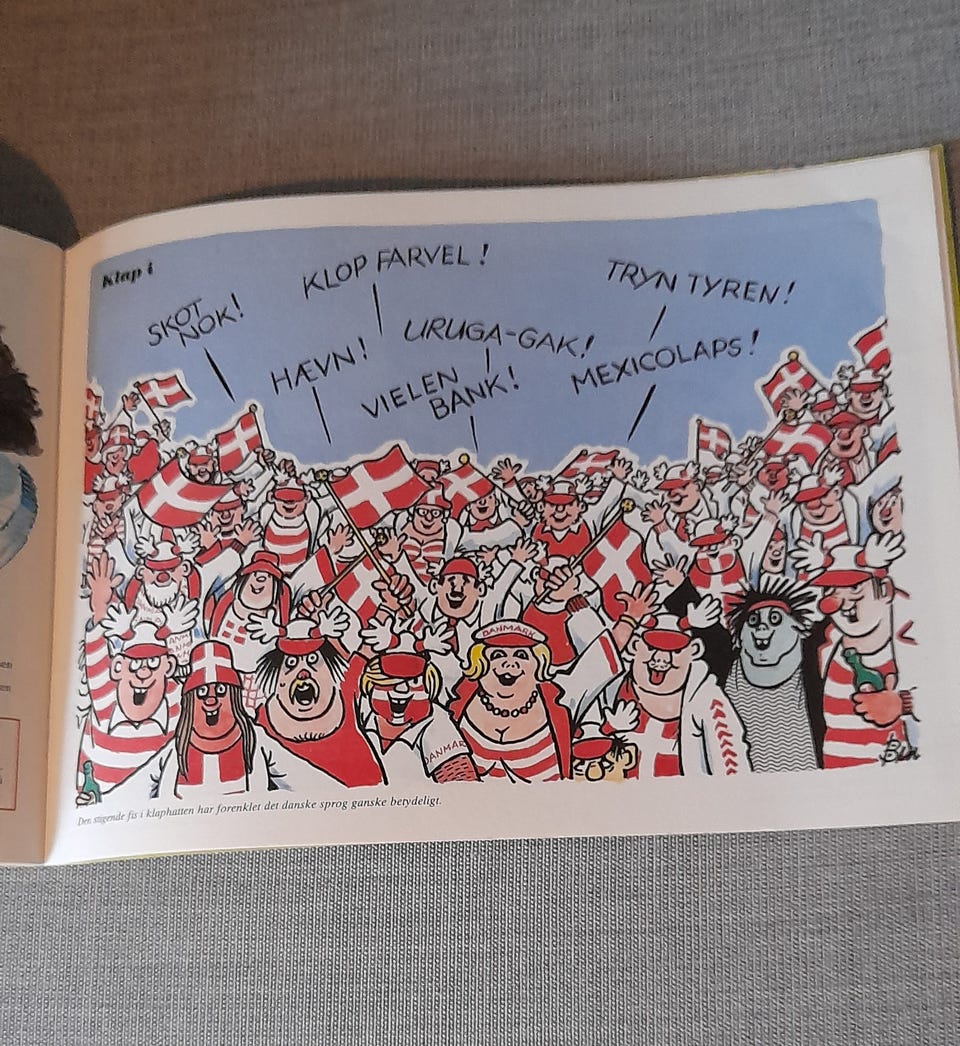 Klap i
SKOT
NOK!
KLOP FARVEL!
HÆVN!
URUGA-GAK!
VIELEN
BANK!
TRYN TYREN!
MEXICOLAPS!
DANMARK
DANMAR
Den stigende fis i klaphatten har forenklet det danske sprog ganske betydeligt.